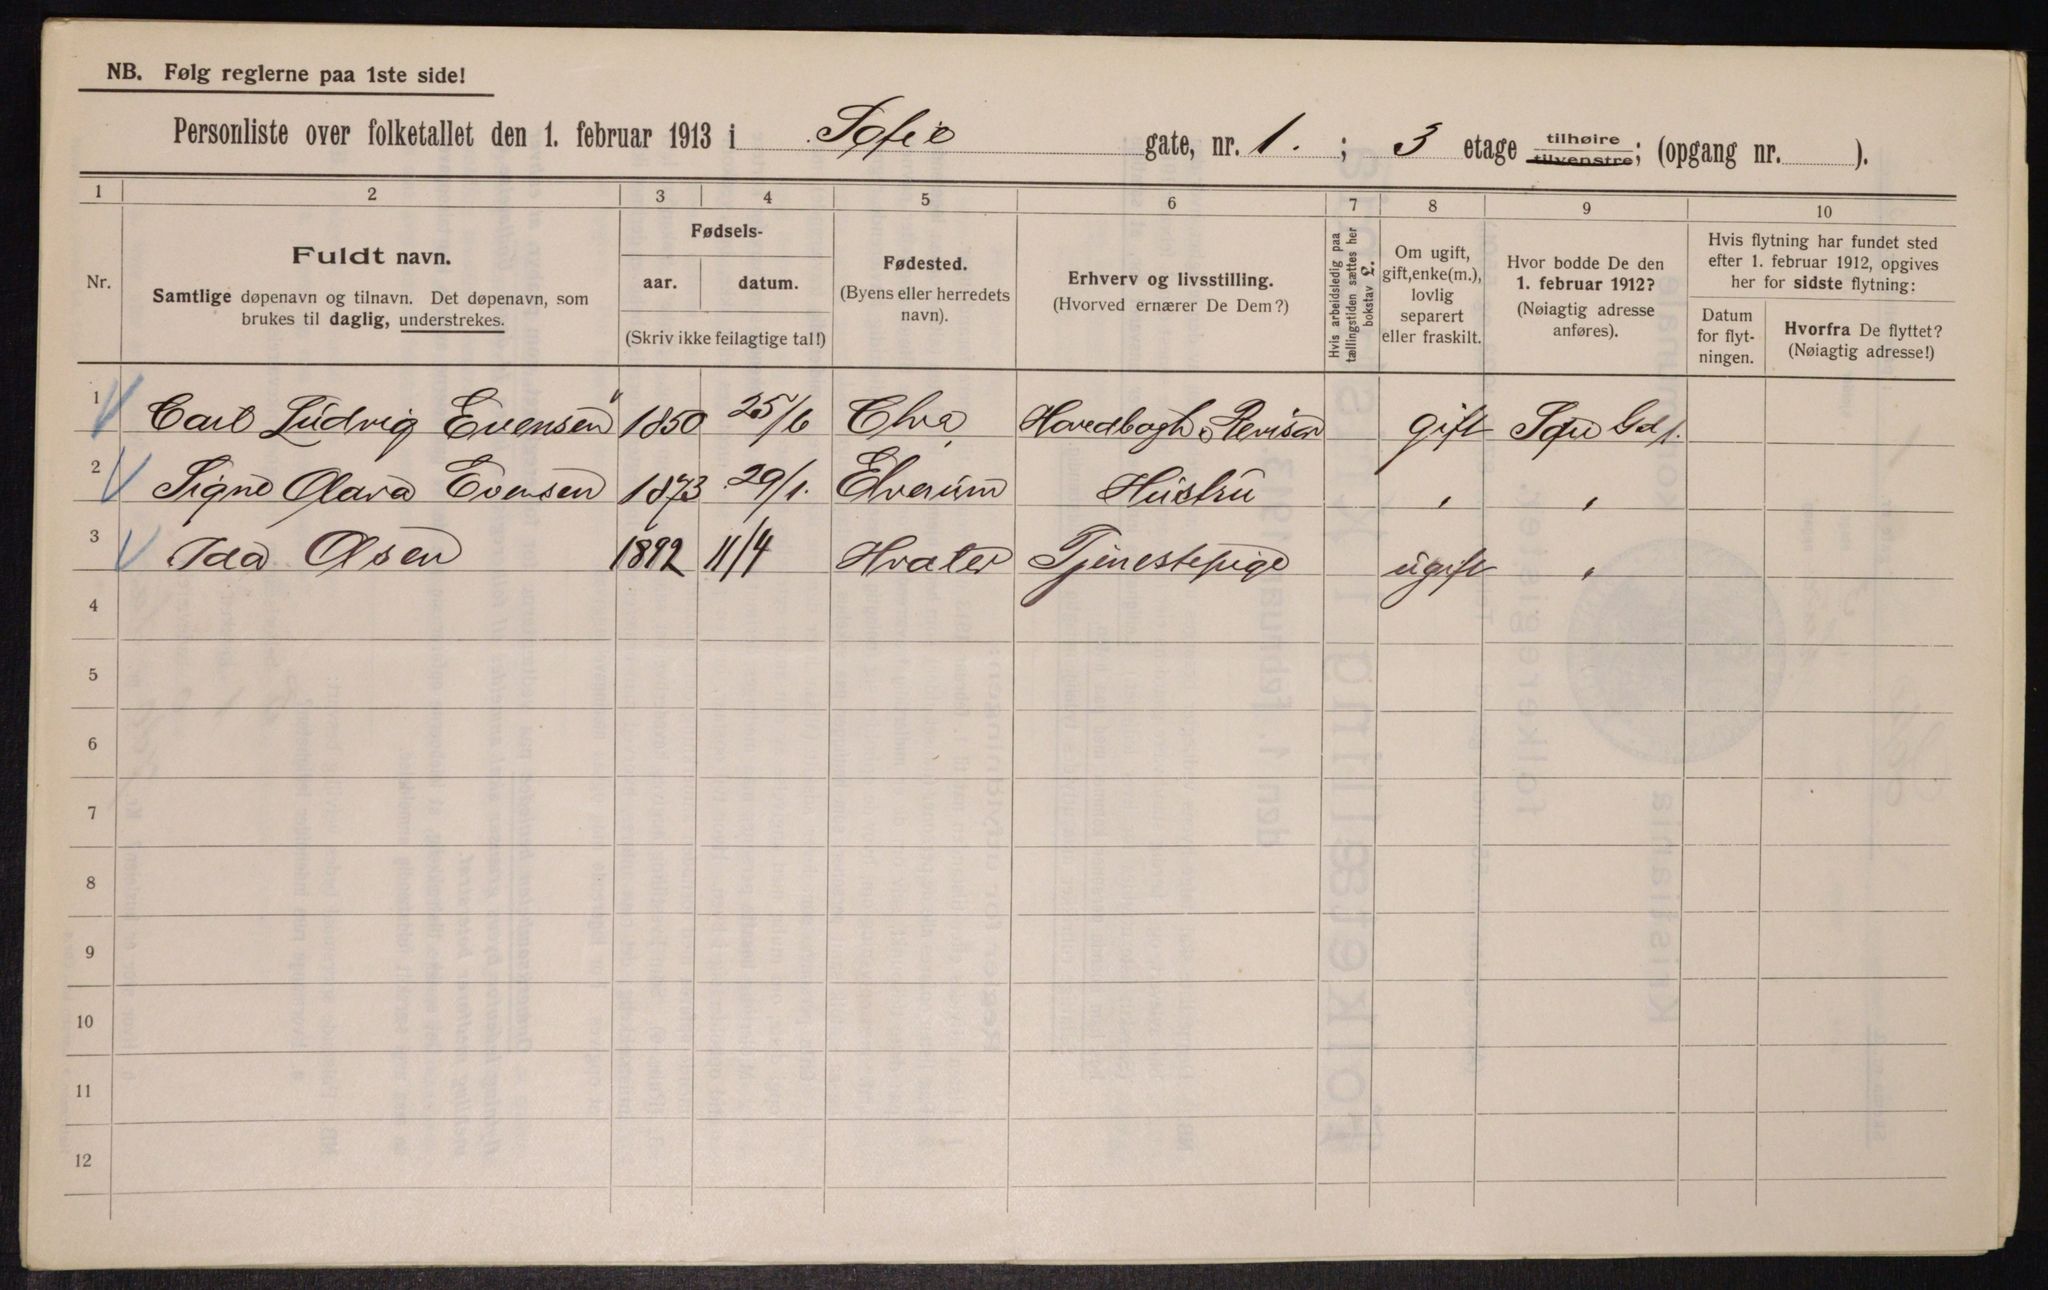 NB. Følg reglerne paa 1ste side!
Personliste over folketallet den 1. februar 1913 i Sofie gate, nr. 1. ; 3 etage tilhøire tilvenstre; (opgang nr. ).
1 2 3 4 5 6 7 8 9 10
Nr.
Fuldt navn.
Samtlige døpenavn og tilnavn. Det døpenavn, som
brukes til daglig, understrekes.
Fødsels-
aar. datum.
(Skriv ikke feilagtige tal!)
Fødested.
(Byens eller herredets
navn).
Erhverv og livsstilling.
(Hvorved ernærer De Dem?)
Hvis arbeidsledig paa
tællingstiden sættes her
bokstav L.
Om ugift,
gift, enke(m.),
lovlig
separert
eller fraskilt.
Hvor bodde De den
1. februar 1912?
(Nøiagtig adresse
anføres).
Hvis flytning har fundet sted
efter 1. februar 1912, opgives
her for sidste flytning:
Datum
for flyt-
ningen.
Hvorfra De flyttet?
(Nøiagtig adresse!)
1 Carl Ludvig Evensen 1850 25/6 Chra Hovedbogh. & Revisor gift Sofie Gd 1.
2 Signe Olava Evensen 1873 29/1. Elverum Hustru " "
3 Ida Olsen 1892 11/4 Hvaler Tjenestepige ugift "
4
5
6
7
8
9
10
11
12